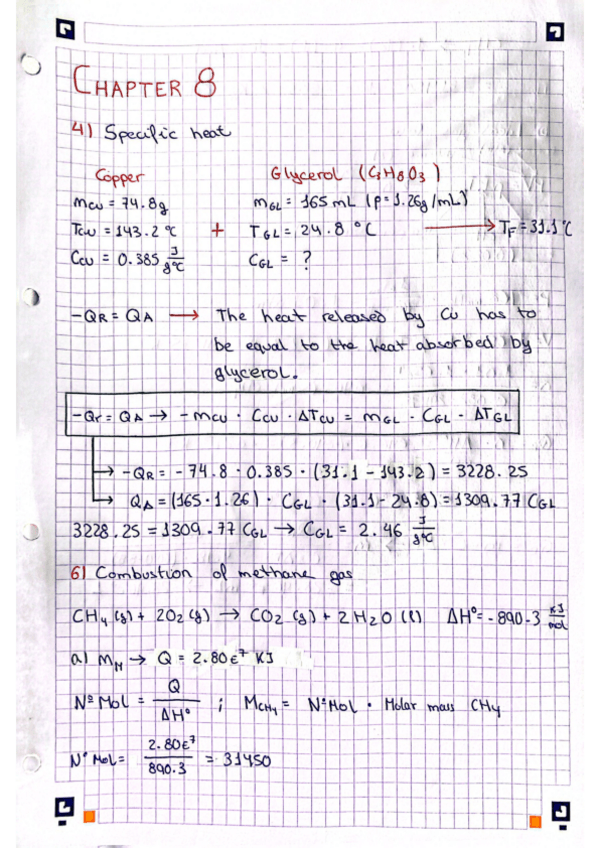 CHAPTER 8
4) Specific heat
Copper Glycerol (C3H8O3)
mCU = 74.8g mGL = 165 mL (ρ = 1.26g/mL)
TCU = 143.2 ºC + TGL = 24.8 ºC → TF = 31.1 ºC
CCU = 0.385 J/gºC CGL = ?
-QR = QA → The heat released by Cu has to
be equal to the heat absorbed by
glycerol.
-Qr = QA → -mCU · CCU · ΔTCU = mGL · CGL · ΔTGL
→ -QR = -74.8 · 0.385 · (31.1 - 143.2) = 3228.25
→ QA = (165 · 1.26) · CGL · (31.1 - 24.8) = 1309.77 CGL
3228.25 = 1309.77 CGL → CGL = 2.46 J/gºC
6) Combustion of methane gas
CH4 (g) + 2O2 (g) → CO2 (g) + 2H2O (l) ΔHº = -890.3 KJ/mol
a) mM → Q = 2.80e⁷ KJ
Nº Mol = Q/ΔHº ; MCH4 = NºMol · Molar mass CH4
Nº Mol = 2.80e⁷/890.3 = 31450